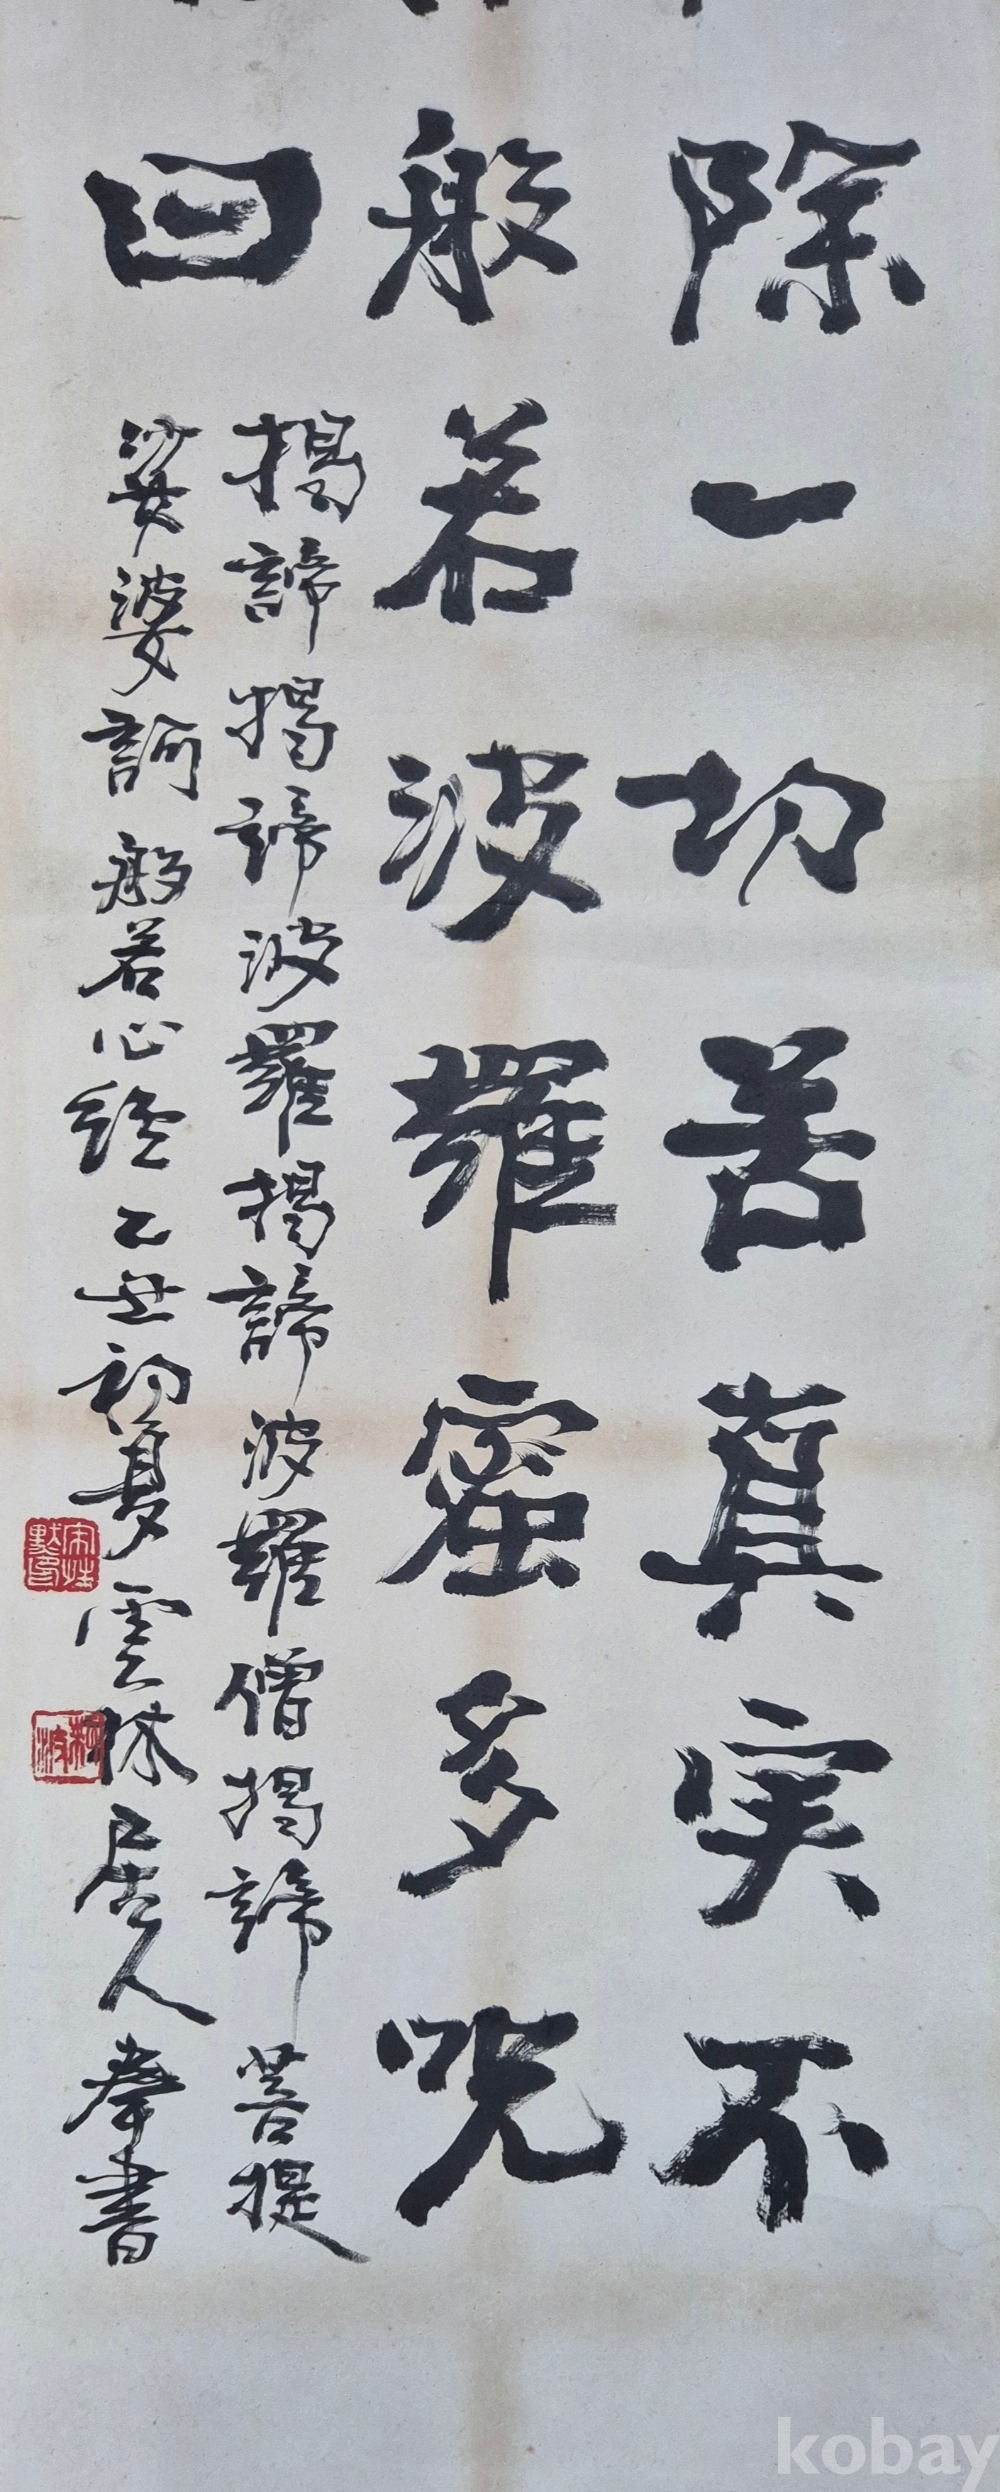 除一切苦真实不
般若波羅蜜多呪
曰
揭諦揭諦波羅揭諦波羅僧揭諦菩提
娑婆訶 般若心經 乙丑初夏 雲林居人奉書
kobay